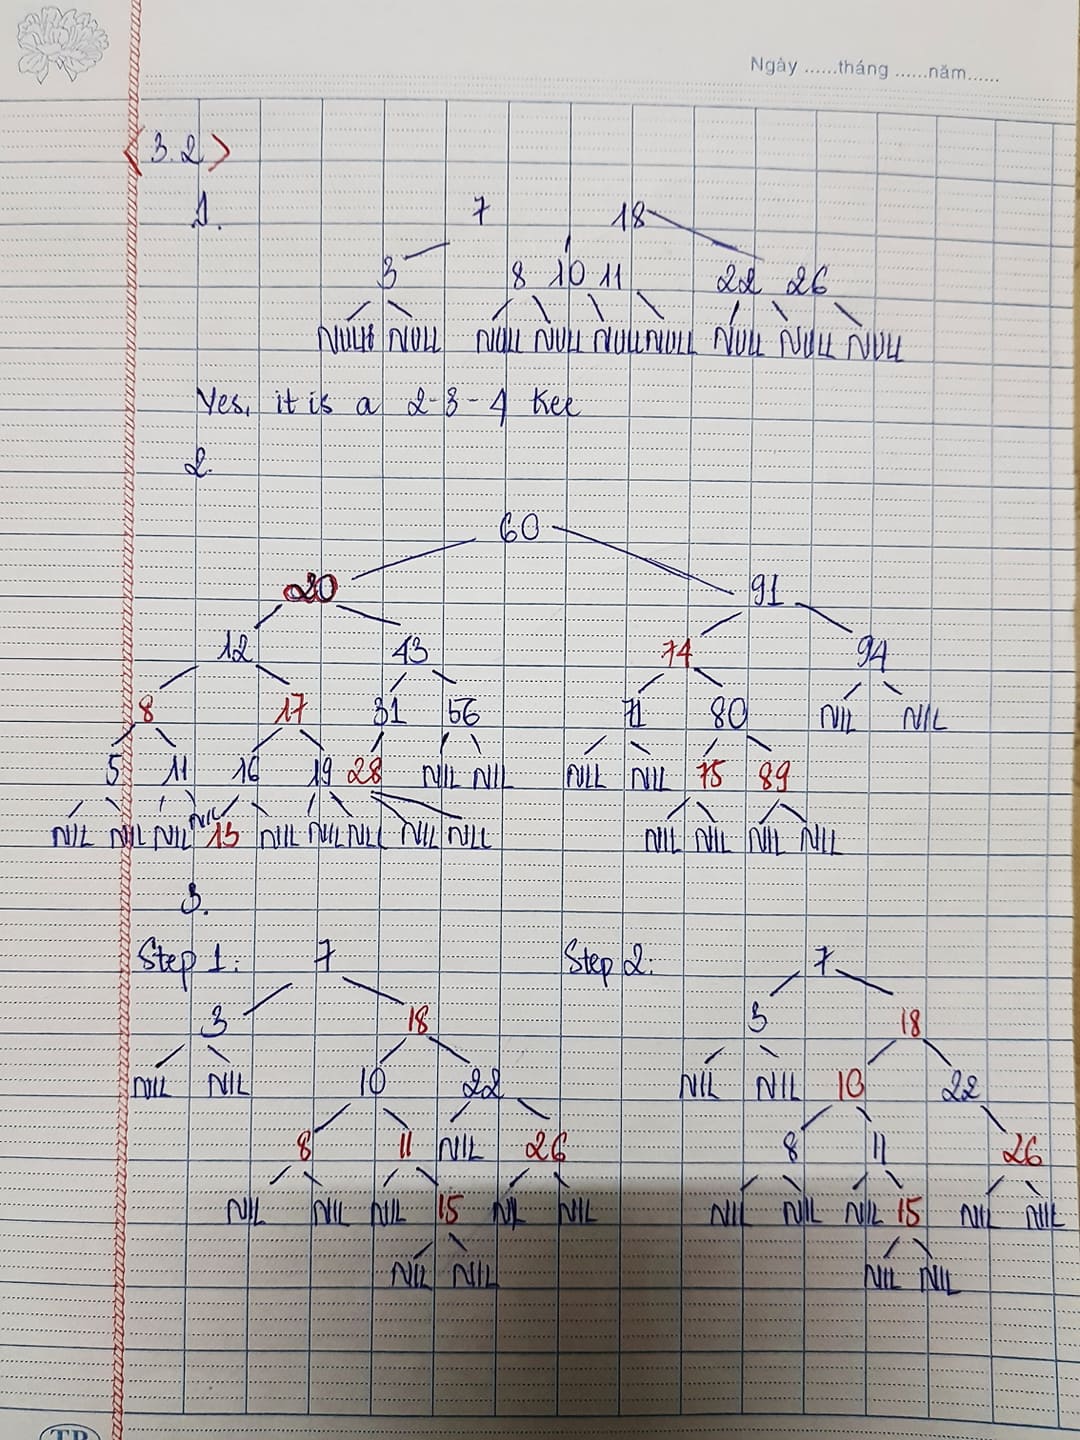 Ngày ......tháng ......năm......
<3.2>
1. 7 18
3 8 10 11 22 26
NULL NULL NULL NULL NULL NULL NULL NULL NULL
Yes, it is a 2-3-4 tree
2.
60
20 91
12 43 74 94
8 17 31 56 71 80 NIL NIL
5 11 16 19 28 NIL NIL NIL NIL 75 89
NIL NIL NIL NIL 15 NIL NIL NIL NIL NIL NIL NIL NIL NIL
3.
Step 1: 7 Step 2: 7
3 18 3 18
NIL NIL 10 22 NIL NIL 10 22
8 11 NIL 26 8 11 26
NIL NIL NIL 15 NIL NIL NIL NIL NIL 15 NIL NIL
NIL NIL NIL NIL
TP